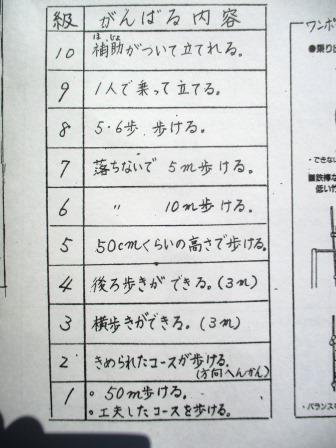 級 がんばる内容
ほ じょ
10 補助がついて立てれる。
9 1人で乗って立てる。
8 5・6歩、歩ける。
7 落ちないで 5m歩ける。
6 〃 10m歩ける。
5 50cmくらいの高さで歩ける。
4 後ろ歩きができる。(3m)
3 横歩きができる。(3m)
2 きめられたコースが歩ける。
(方向へんかん)
1 ・50m歩ける。
・工夫したコースを歩ける。
ワンポ
●乗り
・できない
■鉄棒な
低い竹
・バランスを